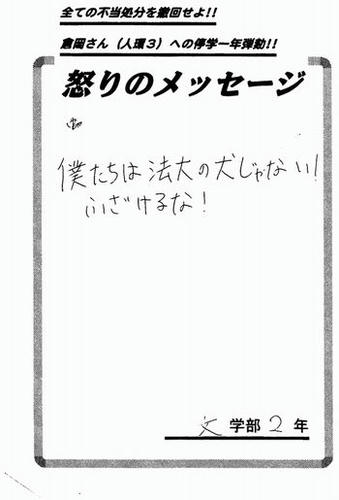 全ての不当処分を撤回せよ!!
倉岡さん（人環３）への停学一年弾劾!!
怒りのメッセージ
僕たちは法大の犬じゃない!
ふざけるな!
文 学部 2 年